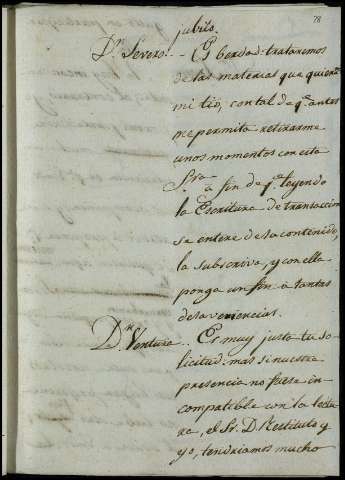 78
jubilo.
Dn. Severo.. Es berdad: trataremos
de las materias que quiera
mi tio, con tal de q.e antes
me permita retirarme
unos momentos con esta
Sra.
a fin de q.e leyendo
la Escritura de transaccion
se entere de su contenido,
la subscriva, y con ella
ponga un fin á tantas
desavenencias.
Dn. Ventura.. Es muy justa tu so-
licitud: mas si nuestra
presencia no fuese in-
compatible con la lectu-
ra, el Sr. D. Restituto y
yo, tendriamos mucho